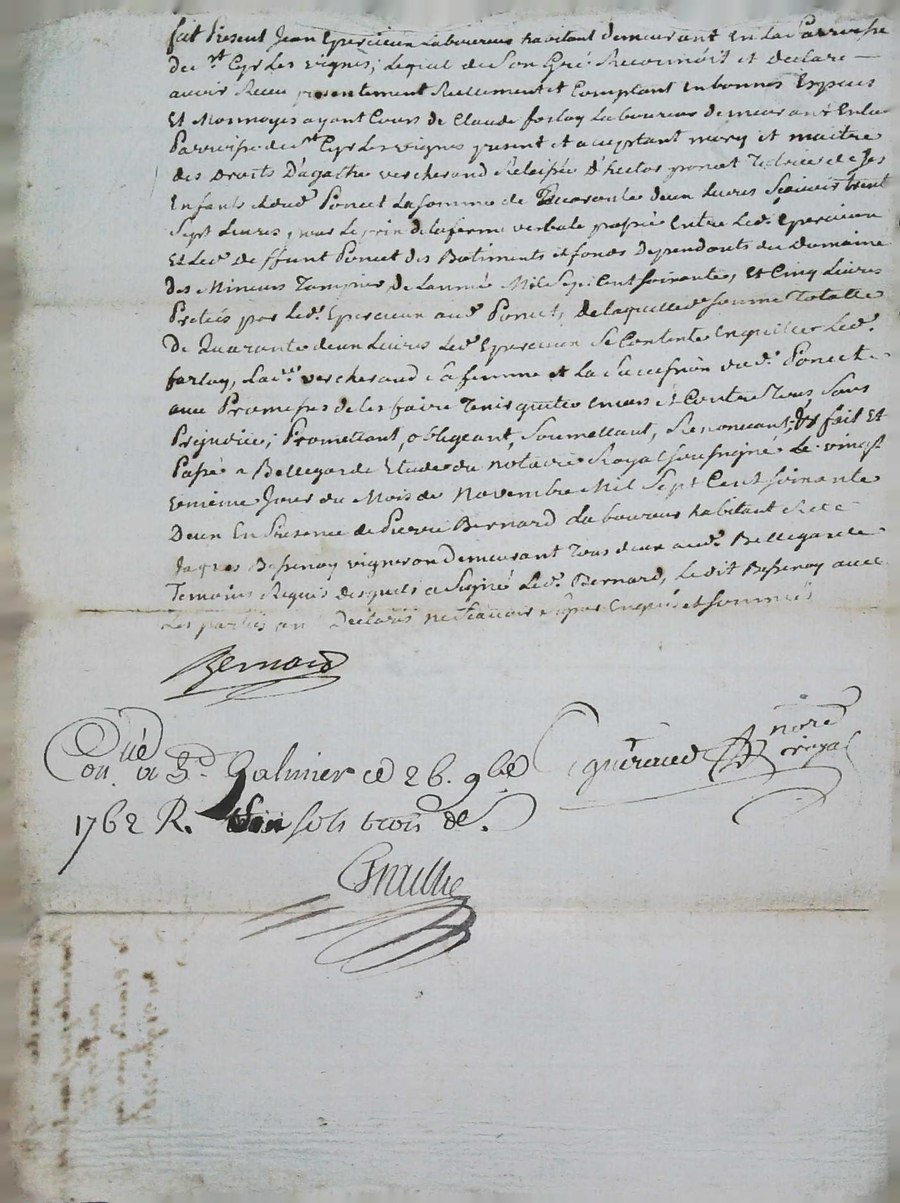 fut Present Jean Epercieux Laboureur habitant demeurant En La Parroisse
de st Cyr Les vignes, Lequel de Son Gré Reconnoit et declare
avoir Receu presentement Reellement et Comptant En bonnes Especes
Et Monnoyes ayant Cours de Claude farlay Laboureur demeurant En lad
Parroisse de st Cyr Les vignes present et acceptant mary et maitre
des Droits D'agathe vercherand Relaissée D'hector poncet Tutrice de Ses
Enfants dud. Poncet La Somme de Quarante deux Livres Scavoir trente
Sept Livres, pour Le prix de la ferme verbale passée Entre Led. Epercieux
Et Led. Deffunt Poncet des Batiments et fonds Dependants du Domaine
des Mineurs De Lannée Mil Sept Cent Soixante, Et Cinq Livres
Pretées par Led. Epercieux aud. Poncet, De laquelle Somme Totalle
De Quarante deux Livres Led. Epercieux Se Contente En quitte Led.
farlay, Lad. vercherand Sa femme et La Succession dud. Poncet
avec Promesses de les faire Tenir quitte Envers Et Contre Tous Sans
Prejudice, Promettant, obligeant, Soumettant, Renonceant, &c fait Et
Passé a Bellegarde Etude du notaire Royal Soussigné Le vingt
Jour du Mois de Novembre Mil Sept Cent Soixante
Deux En Presence de Pierre Bernard Laboureur habitant Et de
Jaques Bessenay vigneron Demeurant Tous deux aud. Bellegarde
Temoins Requis desquels a Signé Led. Bernard, Ledit Bessenay avec
Les parties ont Declarés ne Scavoir Signer Enquis et Sommés
Bernard
Con.lé a St. Galmier ce 26. 9bre
nore royal
1762 R. sols trois d.